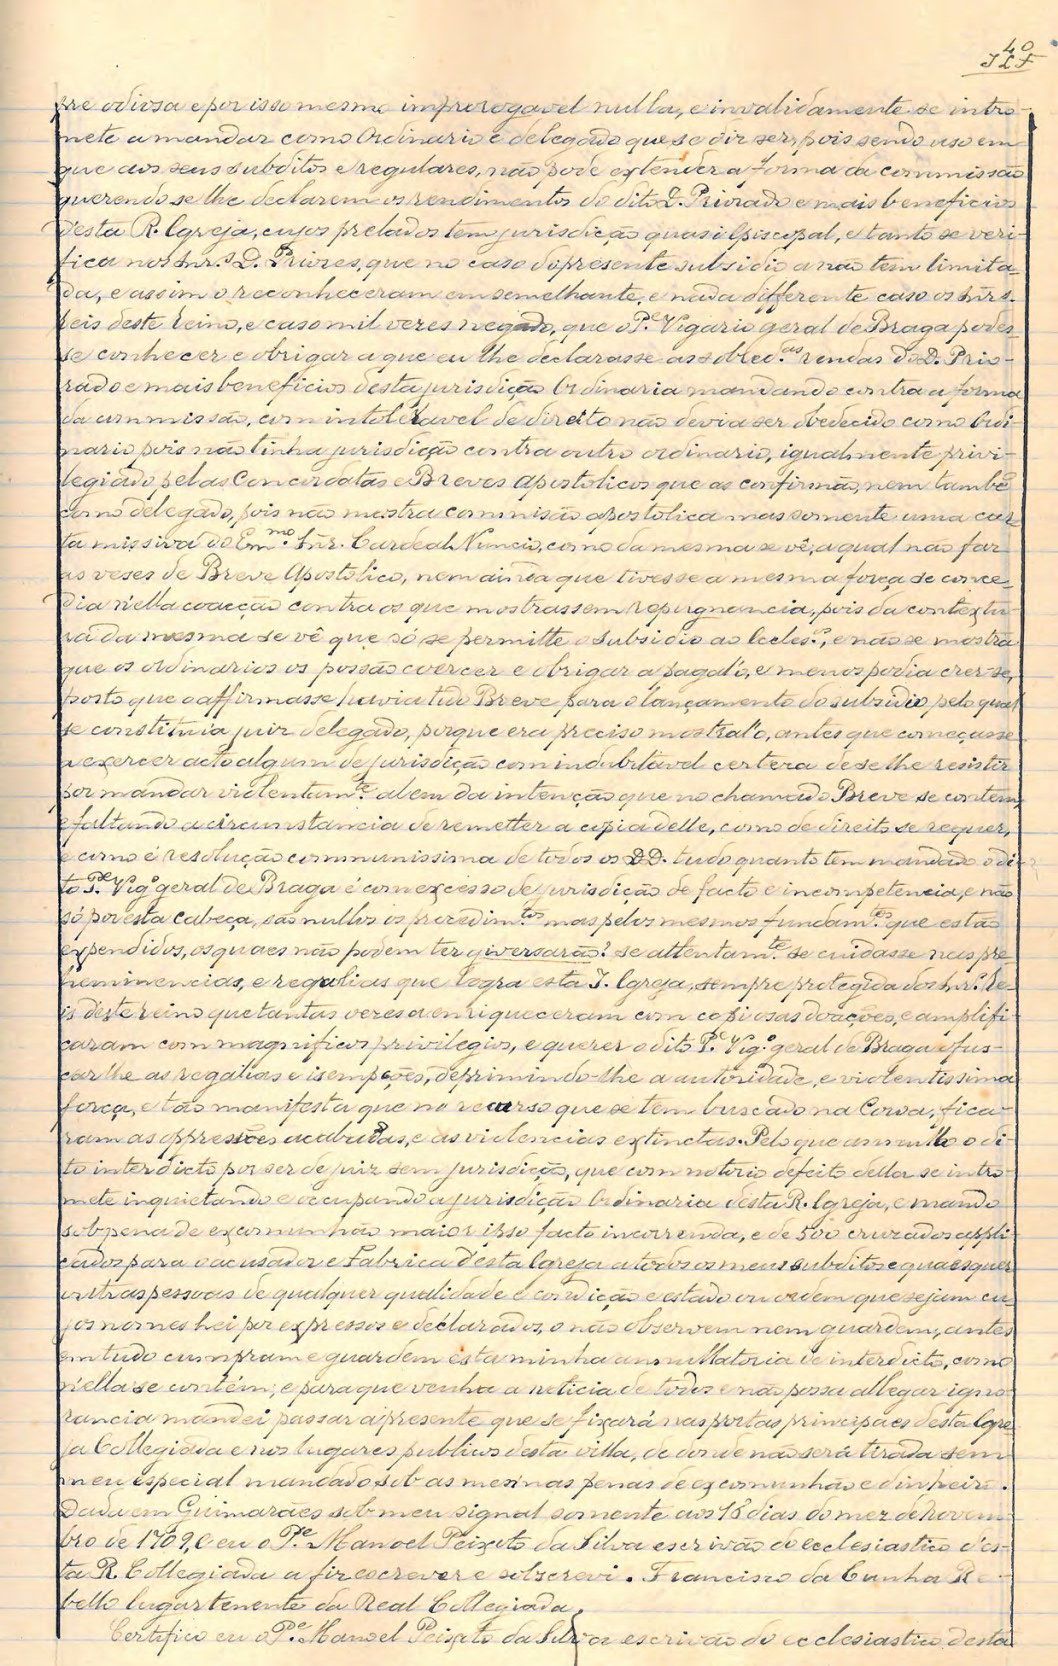 40
JLF
pre odiosa e por isso mesmo improrogavel nulla, e invalidamente se intro-
mete a mandar como Ordinario e delegado que se diz ser, pois sendo uso em
que aos seus subditos e regulares, não pode extender a forma da commissão
querendo se lhe declarem os rendimentos do dito D. Priorado e mais beneficios
d'esta R. Igreja, cujos prelados tem jurisdicção quasi Episcopal, e tanto se veri-
fica nos Snr.s D. Priores, que no caso do presente subsidio a não tem limita-
da, e assim o reconheceram em semelhante, e nada differente caso os Snrs.
Reis deste reino, e caso mil vezes negado, que o P.e Vigario geral de Braga podes-
se conhecer e obrigar a que eu lhe declarasse as sobred.as rendas do D. Prio-
rado e mais beneficios desta jurisdição Ordinaria mandando contra a forma
da commissão, com intoleravel de direito não devia ser obedecido como Ordi-
nario pois não tinha jurisdicção contra outro ordinario, igualmente privi-
legiado pelas Concordatas e Breves Apostolicos que as confirmão, nem tambẽ
como delegado, pois não mostra commisão apostolica mas somente uma car-
ta missiva do Em.mo Snr. Cardeal Nuncio, como da mesma se vê, a qual não faz
as veses de Breve Apostolico, nem ainda que tivesse a mesma força se conce-
dia n'ella coacção contra os que mostrassem repugnancia, pois da contextu-
ra da mesma se vê que só se permitte o subsidio ao Eccles.o, e não se mostra
que os ordinarios os possão coercer e obrigar a pagal'o, e menos podia crer-se,
posto que o affirmasse havia tido Breve para o lançamento do subsidio pelo qual
se constituia juiz delegado, porque era preciso mostral'o, antes que começasse
a exercer acto algum de jurisdição com indubitavel certeza de se lhe resistir
por mandar violentam.te alem da intenção que no chamado Breve se contem,
e faltando a circumstancia de remetter a copia delle, como de direito se requer,
e como é resolução communissima de todos os DD. tudo quanto tem mandado o di-
to P.e Vig.o geral de Braga é com excesso de jurisdicção de facto e incompetencia, e não
só por esta cabeça, são nullos os procedim.tos mas pelos mesmos fundam.tos que estão
expendidos, os quaes não podem ter giversarão? se attentam.te se cuidasse nas pre
heminencias, e regalias que logra esta I. Igreja, sempre protegida dos Snr.s Re-
is deste reino que tantas vezes a enriqueceram com copiosas doações, e amplifi-
caram com magnificos privilegios, e querer o dito P.e Vig.o geral de Braga ofus-
car lhe as regalias e isempções, deprimindo-lhe a autoridade, e violentissima
força, e tão manifesta que no recurso que se tem buscado na Coroa, fica-
ram as oppressões acabadas, e as violencias extinctas. Pelo que annullo o di-
to interdicto por ser de juiz sem jurisdicção, que com notorio defeito della se intro-
mete inquietando e occupando a jurisdicção Ordinaria desta R. Igreja, e mando
sob pena de excomunhão maior ipso facto incorrenda, e de 500 cruzados appli-
cados para o acusador e Fabrica d'esta Igreja a todos os meus subditos e quaesquer
outras pessoas de qualquer qualidade e condicção e estado ou ordem que sejam cu-
jos nomes hei por expressos e declarados, o não observem nem guardem, antes
em tudo cumpram e guardem esta minha annullatoria de interdicto, como
n'ella se contém; e para que venha a noticia de todos e não possa allegar igno-
rancia mandei passar a presente que se fixará nas portas principaes desta Igre-
ja Collegiada e nos lugares publicos desta villa, de donde não será tirada sem
meu especial mandado sob as mesmas penas de excomunhão e dinheiro.
Dada em Guimarães sob meu signal somente aos 18 dias do mez de Novem-
bro de 1709, e eu o P.e Manoel Peixoto da Silva escrivão do ecclesiastico d'es-
ta R. Collegiada a fiz escrever e sobscrevi. Francisco da Cunha Re-
bello lugar tenente da Real Collegiada.
Certifico eu o P.e Manoel Peixoto da Silva escrivão do ecclesiastico desta